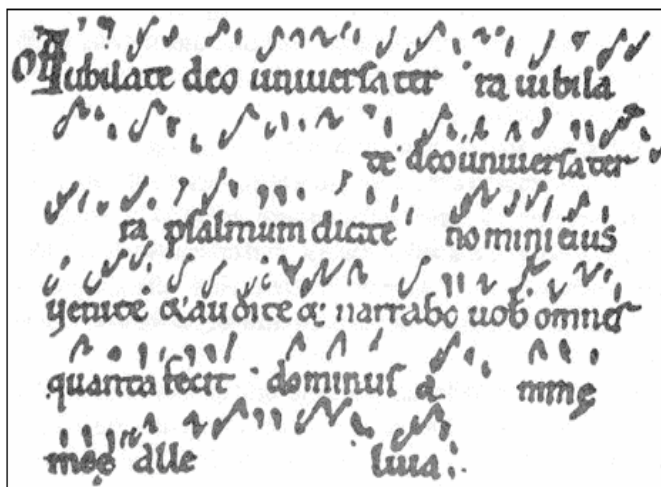 Of Iubilate deo uniuersa ter ra iubila
te deo uniuersa ter
ra psalmum dicite nomini eius
uenite & audite & narrabo uob omnes
quanta fecit dominus & nimę
meę alle luia.